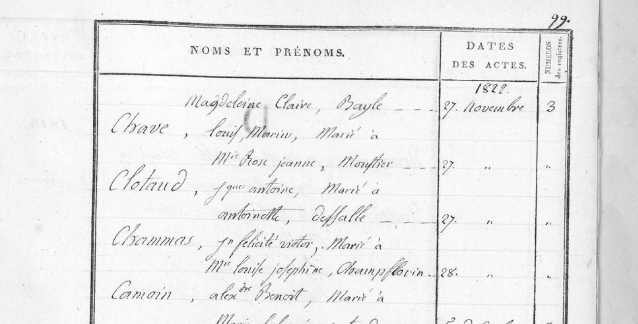 99.
NOMS ET PRÉNOMS.
DATES DES ACTES.
NUMÉROS des registres.
1822.
Magdeleine Claire, Bayle 27. Novembre 3
Chave, Louis Marius, Marié à
Mie Rose jeanne, Moustier 27. " "
Clotaud, jque antoine, Marié à
antoinette, deffalle 27. " "
Chammas, jn felicité victor, Marié à
Mie louise josephine, Champflorin 28. " "
Camoin, alexdre Benoit, Marié à